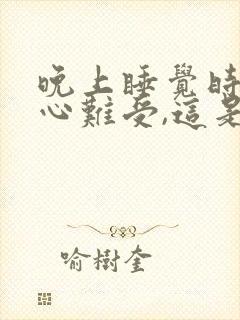 晚上睡覺時
心難受,這是
喻樹奎